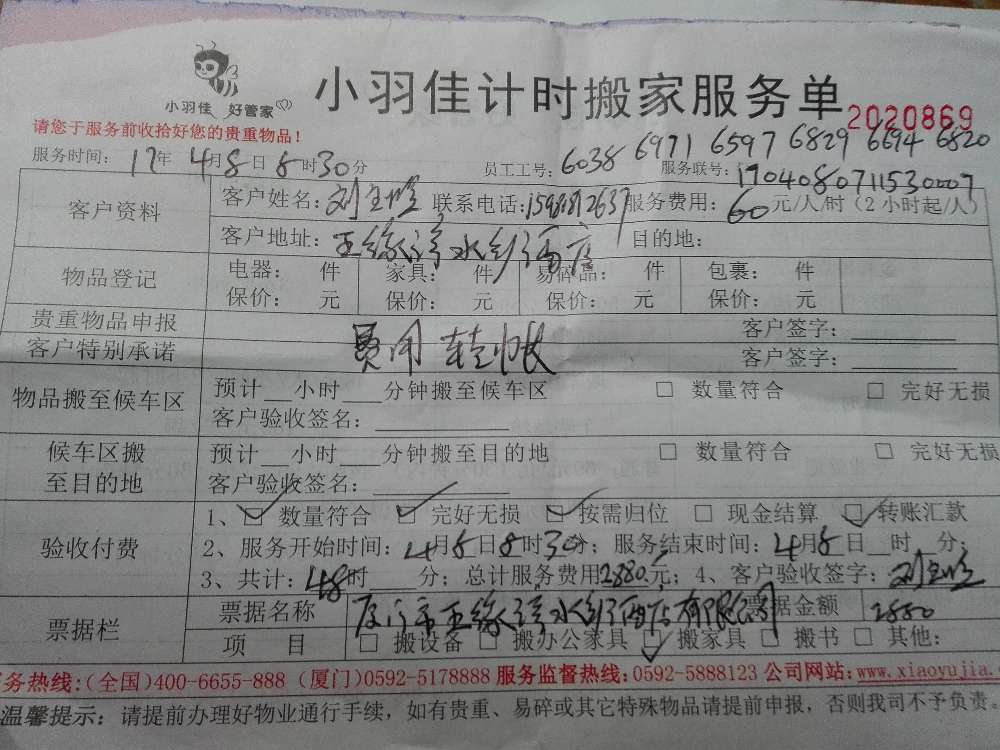 小羽佳 好管家
小羽佳计时搬家服务单
2020869
请您于服务前收拾好您的贵重物品！
服务时间：17年4月8日8时30分 员工工号：6038 6971 6597 6829 6694 6820
服务联号：1704080711530007
客户资料 客户姓名：刘 联系电话： 服务费用：60元/人/时（2小时起/人）
客户地址： 酒店 目的地：
物品登记 电器： 件 家具： 件 易碎品： 件 包裹： 件
保价： 元 保价： 元 保价： 元 保价： 元
贵重物品申报 客户签字：
费用转帐
客户特别承诺 客户签字：
物品搬至候车区 预计__小时__分钟搬至候车区 □ 数量符合 □ 完好无损
客户验收签名：
候车区搬至目的地 预计__小时__分钟搬至目的地 □ 数量符合 □ 完好无损
客户验收签名：
验收付费 1、☑ 数量符合 ☑ 完好无损 ☑ 按需归位 □ 现金结算 ☑ 转账汇款
2、服务开始时间：4月8日8时30分；服务结束时间：4月8日__时__分；
3、共计：48时 分；总计服务费用2880元；4、客户验收签字：刘
票据栏 票据名称 厦门市 酒店有限公司 票据金额 2880
项 目 □ 搬设备 □ 搬办公家具 ☑ 搬家具 □ 搬书 □ 其他：
务热线：(全国)400-6655-888 (厦门)0592-5178888 服务监督热线：0592-5888123 公司网站：www.xiaoyujia.
温馨提示：请提前办理好物业通行手续，如有贵重、易碎或其它特殊物品请提前申报，否则我司不予负责。